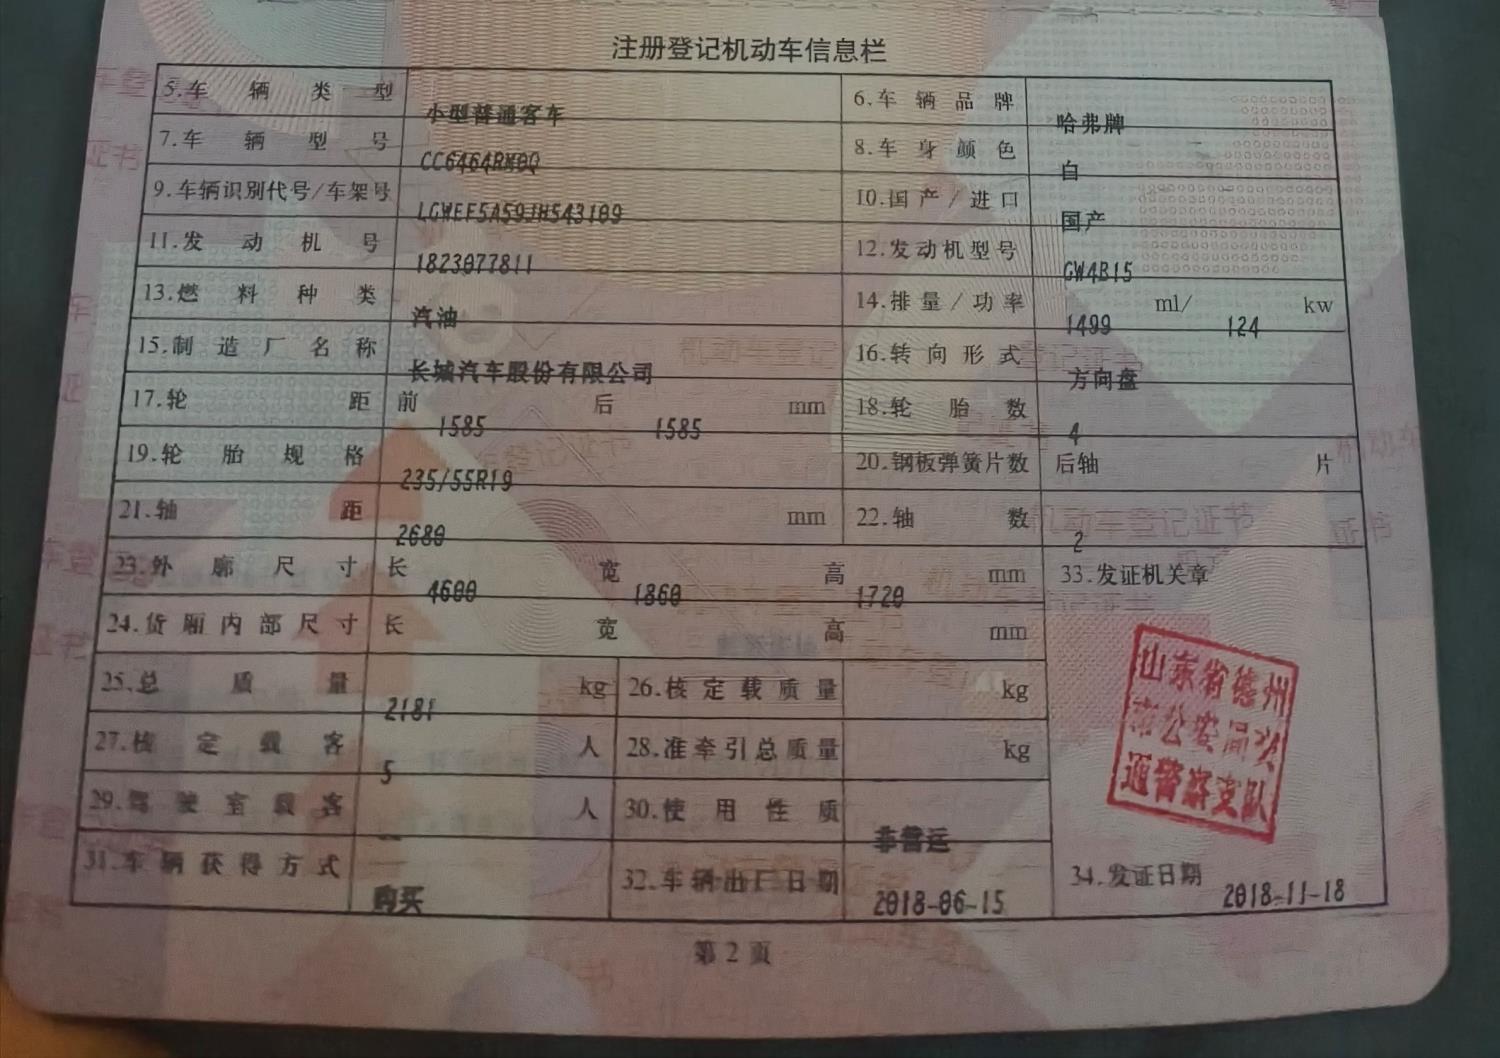 注册登记机动车信息栏
5.车辆类型 小型普通客车 6.车辆品牌 哈弗牌
7.车辆型号 CC6464RM0Q 8.车身颜色 白
9.车辆识别代号/车架号 LGWEF5A59JH543109 10.国产/进口 国产
11.发动机号 1823077811 12.发动机型号 GW4B15
13.燃料种类 汽油 14.排量/功率 1499 ml/ 124 kw
15.制造厂名称 长城汽车股份有限公司 16.转向形式 方向盘
17.轮距 前 1585 后 1585 mm 18.轮胎数 4
19.轮胎规格 235/55R19 20.钢板弹簧片数 后轴 片
21.轴距 2680 mm 22.轴数 2
23.外廓尺寸 长 4600 宽 1860 高 1720 mm 33.发证机关章
24.货厢内部尺寸 长 宽 高 mm
25.总质量 2181 kg 26.核定载质量 kg
27.核定载客 5 人 28.准牵引总质量 kg
29.驾驶室载客 -- 人 30.使用性质 非营运
31.车辆获得方式 购买 32.车辆出厂日期 2018-06-15 34.发证日期 2018-11-18
山东省德州
市公安局交
通警察支队
第2页